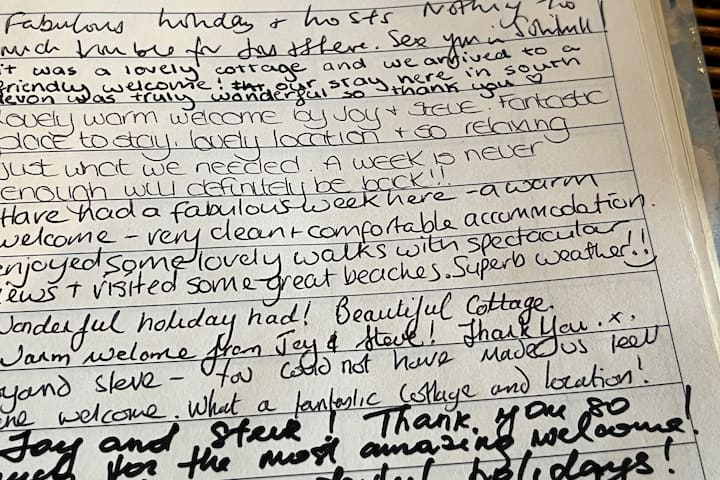 Fabulous holiday + hosts Nothing to
much trouble for Joy + Steve. See you in Solihull!
it was a lovely cottage and we arrived to a
friendly welcome! our stay here in south
devon was truly wonderful so thank you ♡
Lovely warm welcome by Joy + Steve. Fantastic
place to stay. lovely location + so relaxing
Just what we needed. A week is never
enough will definitely be back!!
Have had a fabulous week here - a warm
welcome - very clean + comfortable accommodation.
enjoyed some lovely walks with spectacular
iews + visited some great beaches. Superb weather!!
Wonderful holiday had! Beautiful Cottage.
Warm welome from Joy & Steve! Thank You .x.
oyand Steve - You could not have made us feel
welcome. What a fantastic cottage and location!
Joy and Steve! Thank you so
for the most amazing welcome!
holidays!